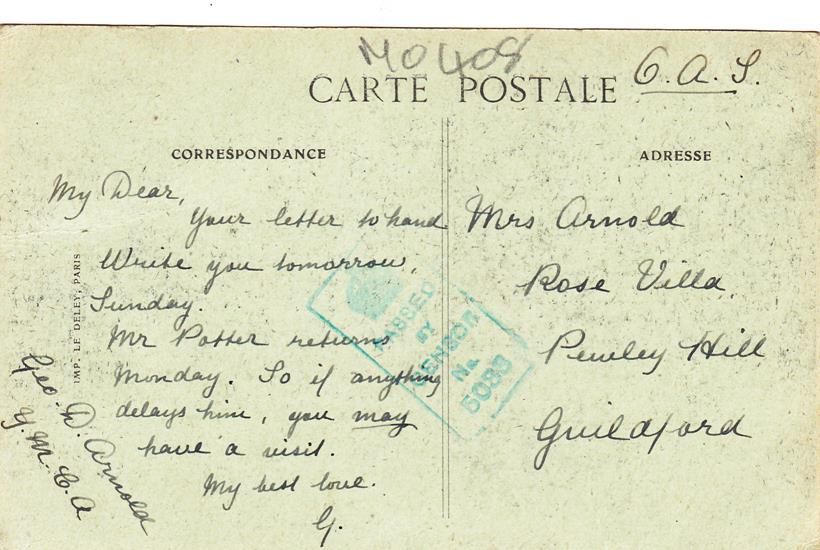 M0408
O.A.S.
CARTE POSTALE
CORRESPONDANCE
My Dear,
Your letter to hand
Write you tomorrow,
Sunday.
Mr Potter returns
Monday. So if anything
delays him, you may
have a visit.
My best love.
G.
Geo. D. Arnold
Y.M.C.A
IMP. LE DELEY, PARIS
PASSED
BY
CENSOR
No.
5083
ADRESSE
Mrs Arnold
Rose Villa
Pewley Hill
Guildford